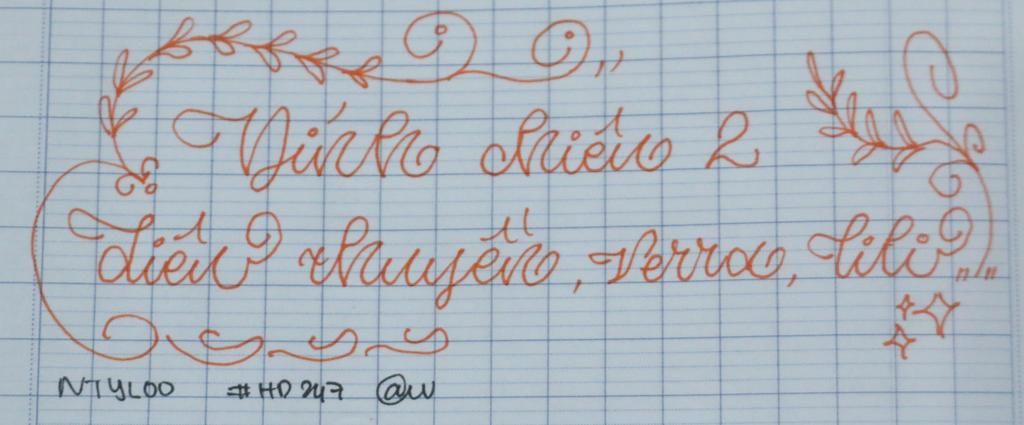 Vính chiến 2
Liến thuyền, Verra, Lili
NTYLOO #HD247 @w